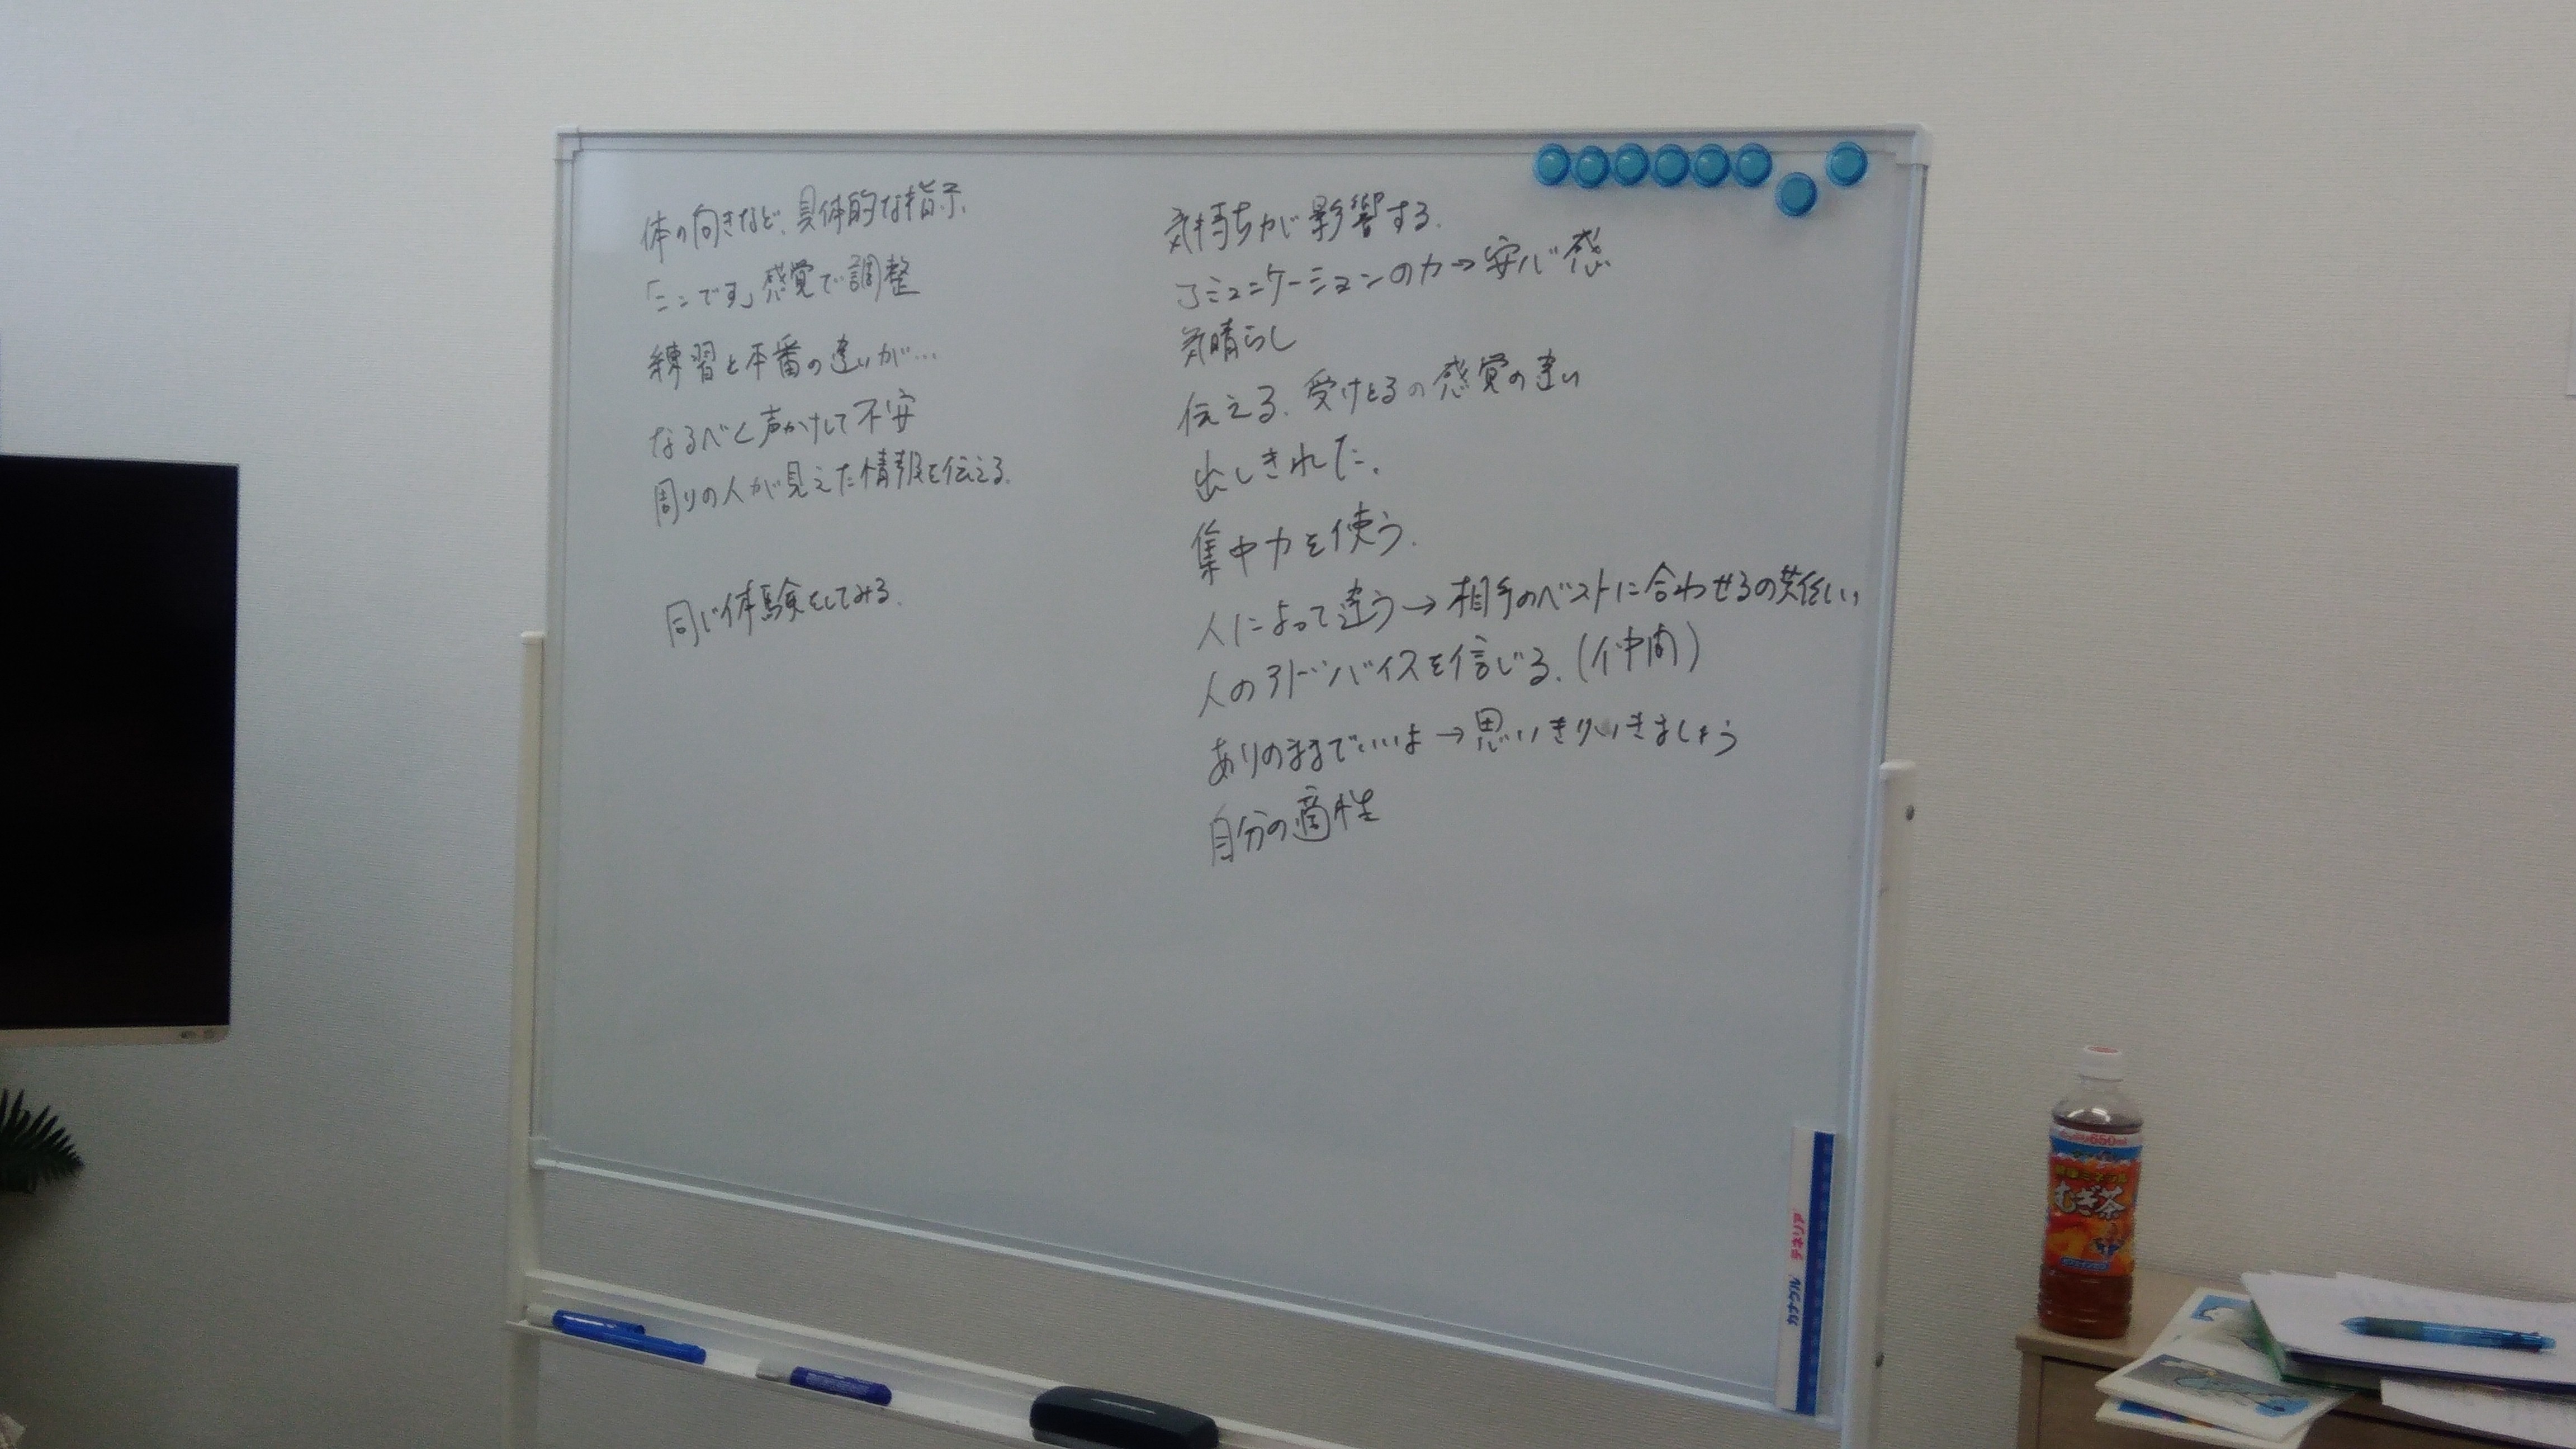 体の向きなど、具体的な指示、
「ここです」感覚で調整
練習と本番の違いが…
なるべく声かけして不安
周りの人が見えた情報を伝える.
同じ体験をしてみる.
気持ちが影響する.
コミュニケーションの力→安心感
気晴らし
伝える、受けとるの感覚の違い
出しきれた.
集中力を使う.
人によって違う→相手のベストに合わせるの難しい
人のアドバイスを信じる.(仲間)
ありのままでいいよ→思いきりいきましょう
自分の適性
カナクル テネリア
650ml
健康ミネラル
むぎ茶